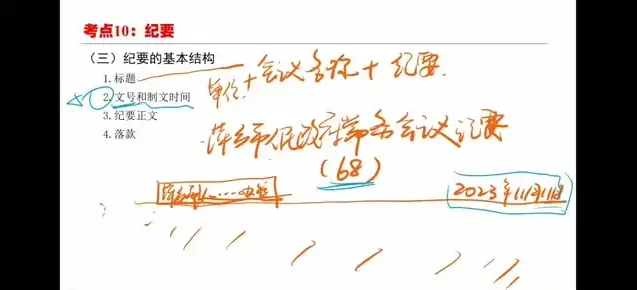 考点10：纪要
（三）纪要的基本结构
1.标题
单位+会议名称+纪要
2.文号和制文时间
3.纪要正文
萍乡市人民政府常务会议纪要
4.落款
(68)
2023年11月11日